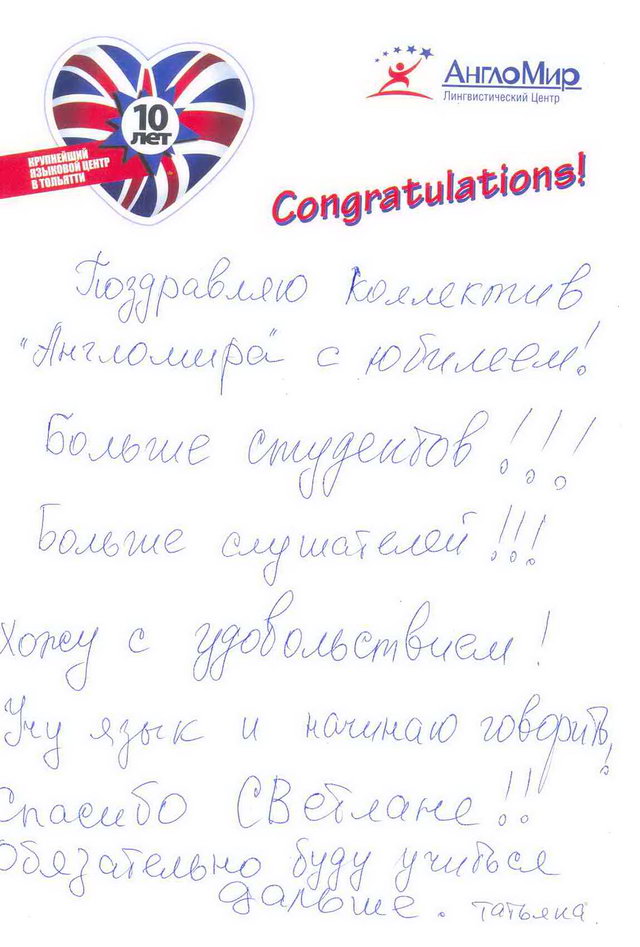 10
лет
КРУПНЕЙШИЙ
ЯЗЫКОВОЙ ЦЕНТР
В ТОЛЬЯТТИ
АнглоМир
Лингвистический Центр
Congratulations!
Поздравляю коллектив
"Англомира" с юбилеем!
Больше студентов!!!
Больше слушателей!!!
Хожу с удовольствием!
Учу язык и начинаю говорить!
Спасибо СВетлане!!
Обязательно буду учиться
дальше. Татьяна.